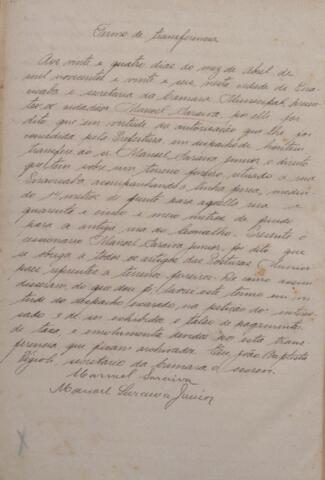 Termo de transferencia
Aos vinte e quatro dias do mez de Abril de
mil novecentos e vinte e seis, nesta cidade de
e secretaria da Camara Municipal, presen-
te o cidadão Manoel Saraiva, por elle foi
dito que em virtude da autorisação que lhe foi
concedida pela Prefeitura, em despacho de hontem
transfere ao sr. Manoel Saraiva Junior o direito
que tem sobre um terreno foreiro, situado á rua
acompanhando a linha ferrea, medin-
do metros de frente para aquella rua e
quarenta e cinco e meio metros de fundo
para a antiga rua do Presente o
cessionario Manoel Saraiva Junior, foi dito que
se obriga a todos os artigos das Posturas Munici-
paes referentes a terrenos foreiros. De como assim
disseram, do que dou fé, lavrei este termo em vir-
tude do despacho exarado na petição do interes-
sado e de ser exhibido o talão de pagamento
da taxa, e emolumentos devidos por esta trans-
ferencia que ficam archivados. Eu, João Baptista
secretario da Camara o escrevi.
Manoel Saraiva
Manoel Saraiva Junior